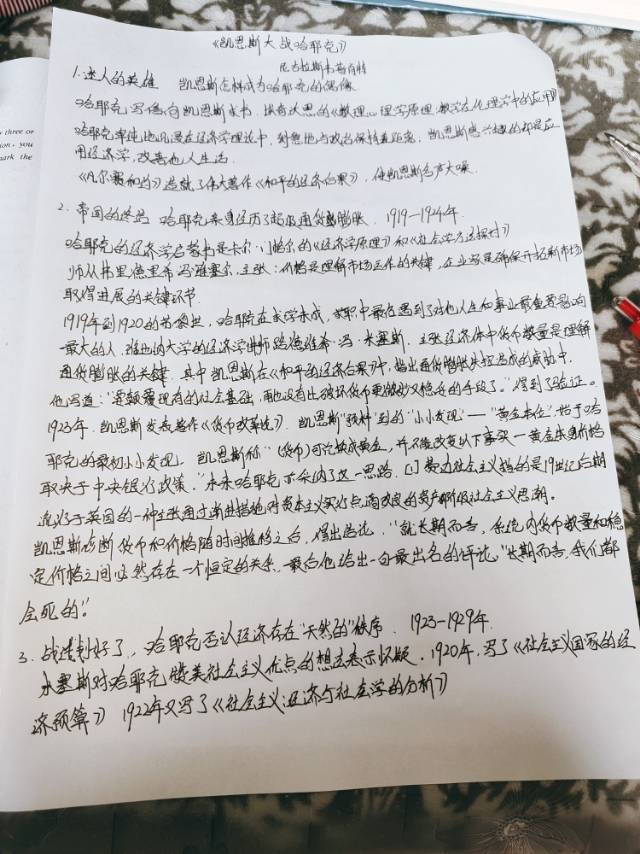 《凯恩斯大战哈耶克》
尼古拉斯韦普肖特
three or
ion, you
ark the
1.迷人的英雄 凯恩斯怎样成为哈耶克的偶像
哈耶克写信向凯恩斯求书,埃奇沃思的《数理心理学:数学在伦理学中的应用》
哈耶克单纯地沉浸在经济学理论中,刻意地与政治保持着距离,凯恩斯感兴趣的都是应
用经济学,改善他人生活.
《凡尔赛和约》造就了伟大著作《和平的经济后果》,使凯恩斯名声大噪.
2.帝国的终局 哈耶克亲身经历了超级通货膨胀. 1919-1924年.
哈耶克的经济学启蒙书是卡尔·门格尔的《经济学原理》和《社会学方法探讨》
师从弗里德里希·冯·维塞尔,主张:价格是理解市场运作的关键,企业家是确保开拓新市场
取得进展的关键环节.
1919年到1920的苏黎世,哈耶克在求学未成,求职中最在遇到了对他人生和事业最重要影响
最大的人,维也纳大学的经济学讲师路德维希·冯·米塞斯,主张经济体中货币数量是理解
通货膨胀的关键.其中凯恩斯在《和平的经济后果》中,指出通货膨胀失控造成的威胁中.
他写道:“要颠覆现有的社会基础,再也没有比破坏货币更微妙又稳妥的手段了.”得到了验证。
1923年.凯恩斯发表著作《货币改革论》.凯恩斯“预料”到的“小小发现”——“黄金本位”,始于哈
耶克的最初小小发现, 凯恩斯称“(货币)可兑换成黄金,并不能改变以下事实—黄金本身价格
取决于中央银行政策.”未来哈耶克亦采纳了这一思路.[1]费边社会主义指的是19世纪后期
流行于英国的一种主张通过渐进措施对资本主义实行点滴改良的资产阶级社会主义思潮。
凯恩斯诊断货币和价格随时间推移之后,得出结论,“就长期而言,系统内货币数量和稳
定价格之间必然存在一个恒定的关系.最后他给出一句最出名的评论,“长期而言,我们都
会死的.”
3.战线划好了,哈耶克否认经济存在“天然的”秩序. 1923-1929年.
米塞斯对哈耶克赞美社会主义优点的想法表示怀疑.1920年,写了《社会主义国家的经
济预算》 1922年又写了《社会主义:经济与社会学的分析》